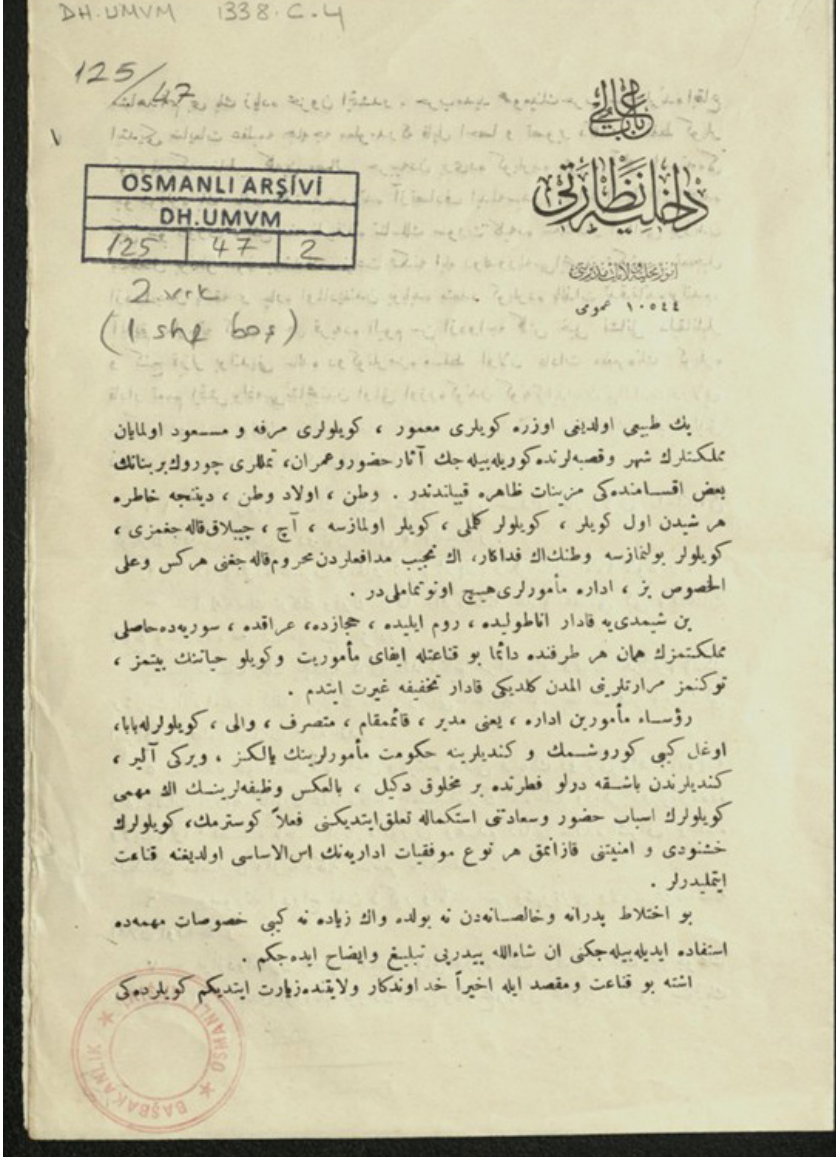 DH.UMVM 1338.C.4
125/47
باب عالی
داخلیه نظارتی
امور محلیهٔ ولایات مدیریتی
عمومی ١٠٥٤٤
OSMANLI ARŞİVİ
DH.UMVM
125 47 2
2 vrk
(1 shf boş)
پك طبیعی اولدیغی اوزره کویلری معمور ، کویلولری مرفه و مسعود اولمایان
مملکتلرك شهر وقصبه‌لرنده کوریله‌بیله‌جك آثار حضور وعمران، تمللری چوروك بر بنانك
بعض اقسامنده‌کی مزینات ظاهره قبیلندندر . وطن ، اولاد وطن ، دینجه خاطره
هر شیدن اول کویلر ، کویلولر کلملی ، کویلر اولمازسه ، آچ ، چیپلاق قاله‌جغمزی ،
کویلولر بولنمازسه وطنك اك فداکار، اك نجیب مدافعلردن محروم قاله‌جغنی هرکس وعلی
الخصوص بز ، اداره مأمورلری هیچ اونوتماملی‌در .
بن شیمدی‌یه قادار اناطولیده ، روم ایلیده ، حجازده، عراقده ، سوریه‌ده حاصلی
مملکتمزك همان هر طرفنده دائما بو قناعتله ایفای مأموریت وکویلو حیاتنك بیتمز ،
توکنمز مرارتلرینی المدن کلدیکی قادار تخفیفه غیرت ایتدم .
رؤساء مأمورین اداره ، یعنی مدیر ، قائممقام ، متصرف ، والی ، کویلولرله بابا،
اوغل کبی کوروشمك و کندیلرینه حکومت مأمورلرینك یالکز ، ویرکی آلیر ،
کندیلرندن باشقه درلو فطرتده بر مخلوق دکیل ، بالعکس وظیفه‌لرینك اك مهمی
کویلولرك اسباب حضور وسعادتنی استکماله تعلق ایتدیکنی فعلاً کوسترمك، کویلولرك
خشنودی و امنیتنی قازانمق هر نوع موفقیات اداریه‌نك اس الاساسی اولدیغنه قناعت
ایتملیدرلر .
بو اختلاط پدرانه و خالصانه‌دن نه یولده واك زیاده نه کبی خصوصات مهمه‌ده
استفاده ایدیله‌بیله‌جکنی ان شاءالله پیدرپی تبلیغ وایضاح ایده‌جکم .
اشته بو قناعت ومقصد ایله اخیراً خداوندکار ولایتنده زیارت ایتدیکم کویلرده‌کی
BAŞBAKANLIK OSMANLI